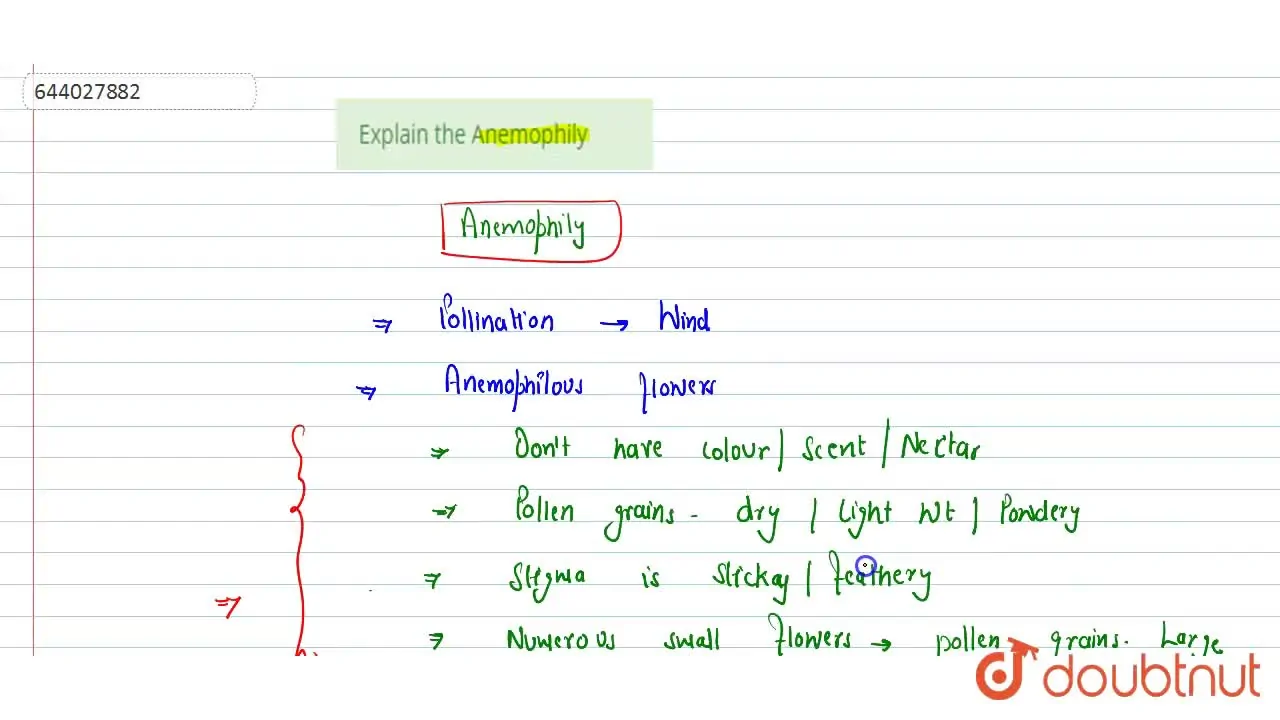 644027882
Explain the Anemophily
Anemophily
⇒ Pollination → Wind
⇒ Anemophilous flowers
⇒ Don't have colour / Scent / Nectar
⇒ Pollen grains - dry / Light Wt / Powdery
⇒ Stigma is Sticky / Feathery
⇒
⇒ Numerous small flowers → pollen grains. Large
doubtnut